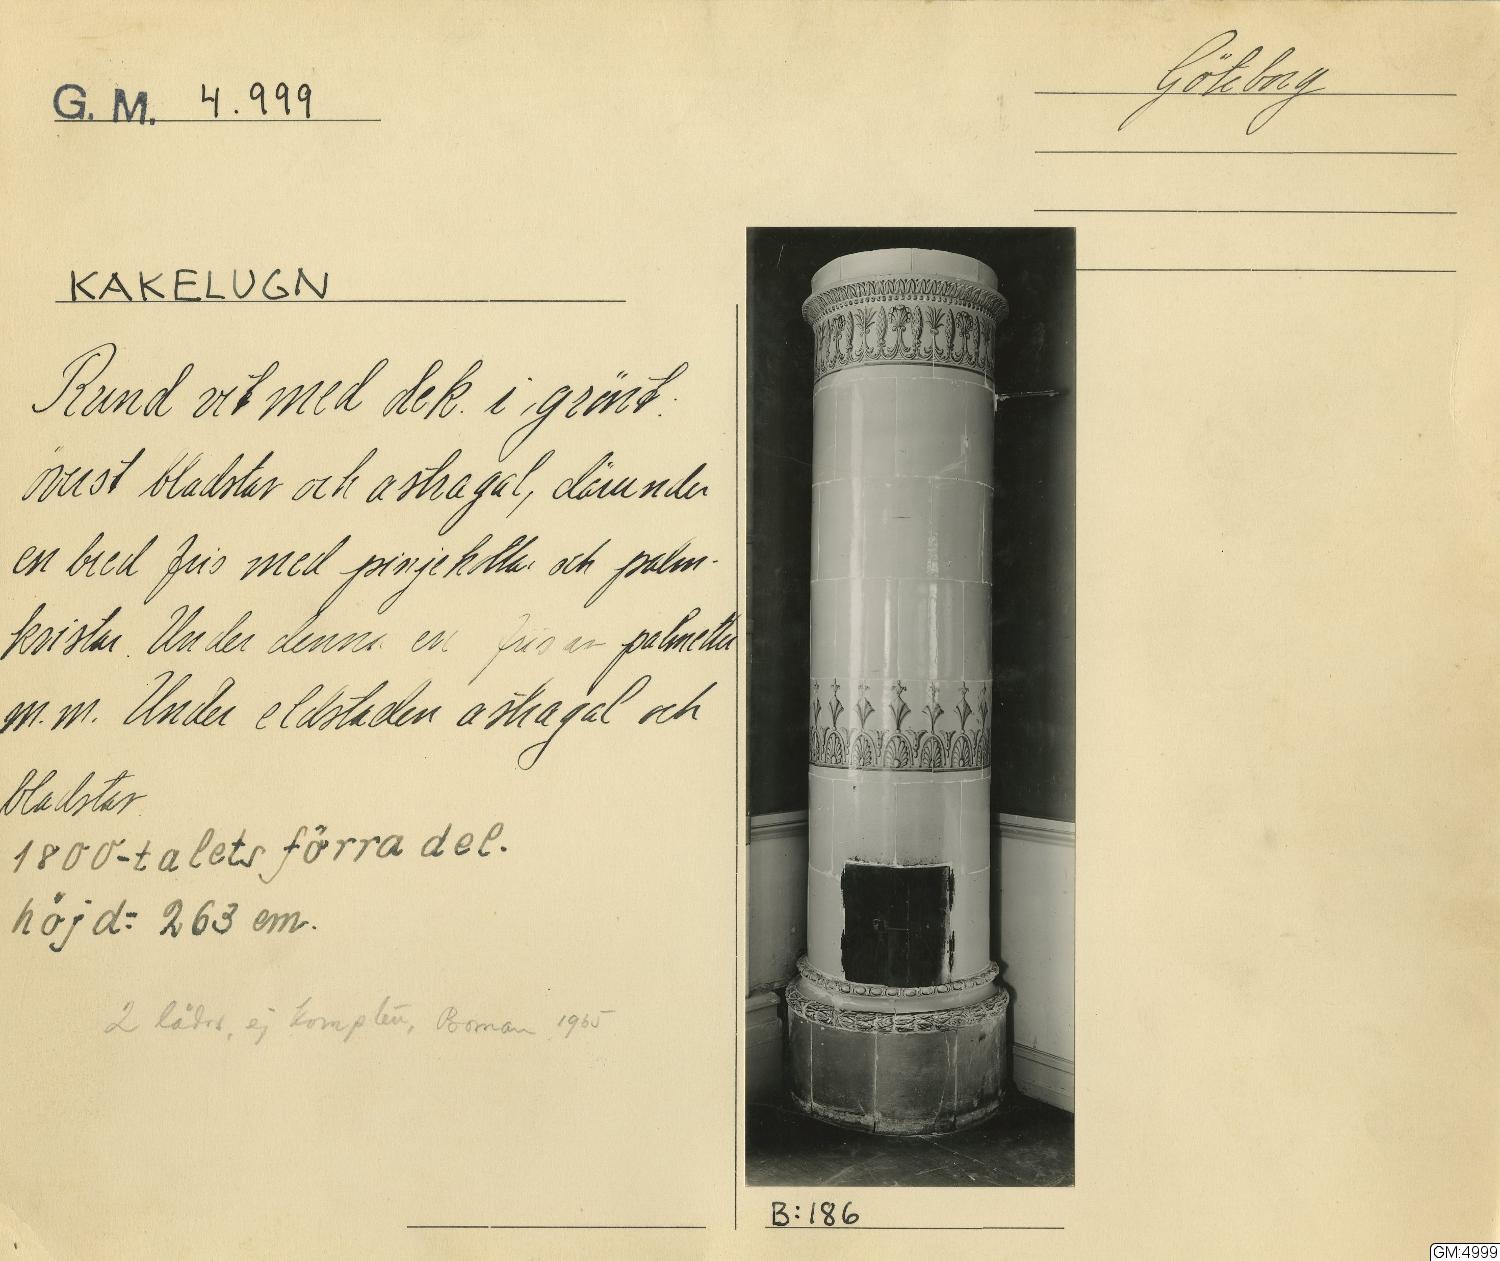 G. M. 4.999
Göteborg
KAKELUGN
Rund vit med dek. i grönt.
överst bladstav och astragal, därunder
en bred fris med pinjekottar och palm-
kvistar. Under denna en fris av palmetter
m.m. Under eldstaden astragal och
bladstav.
1800-talets förra del.
höjd: 263 cm.
2 lådor, ej komplett, Boman 1965
B:186
GM:4999